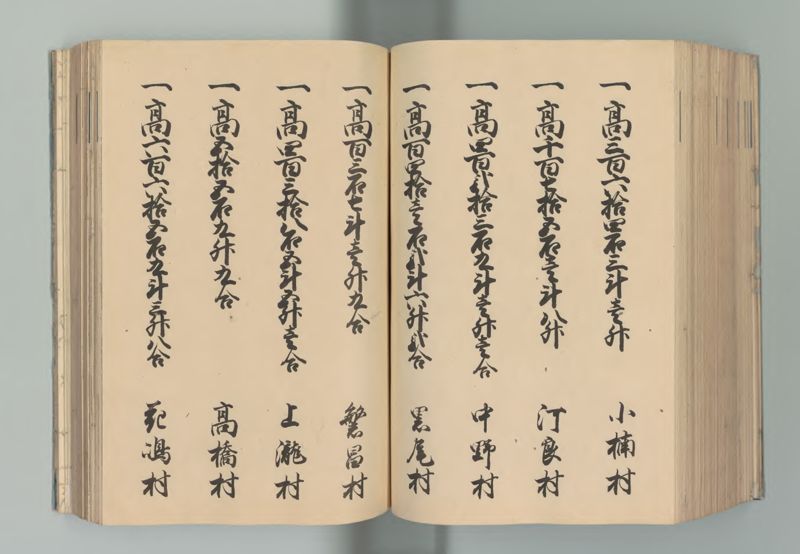 一高三百六拾四石三斗壱升 小楠村
一高千百七拾五石壱斗八升 汀良村
一高四百弐拾三石九斗壱升壱合 中野村
一高百四拾壱石弐斗六升弐合 黒尾村
一高百三石七斗壱升九合 繁昌村
一高四百三拾八石五斗五升壱合 上瀧村
一高五拾五石九升九合 高橋村
一高六百六拾五石九斗三升八合 花嶋村